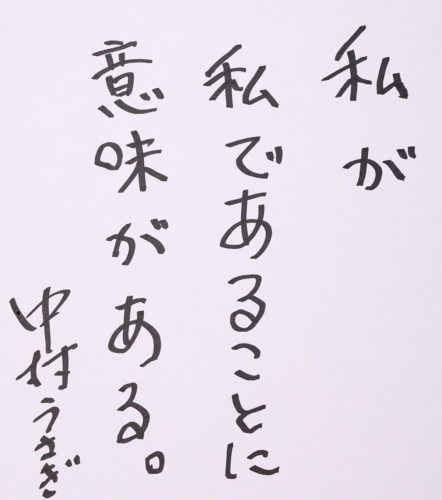 私が
私であることに
意味がある。
中村うさぎ